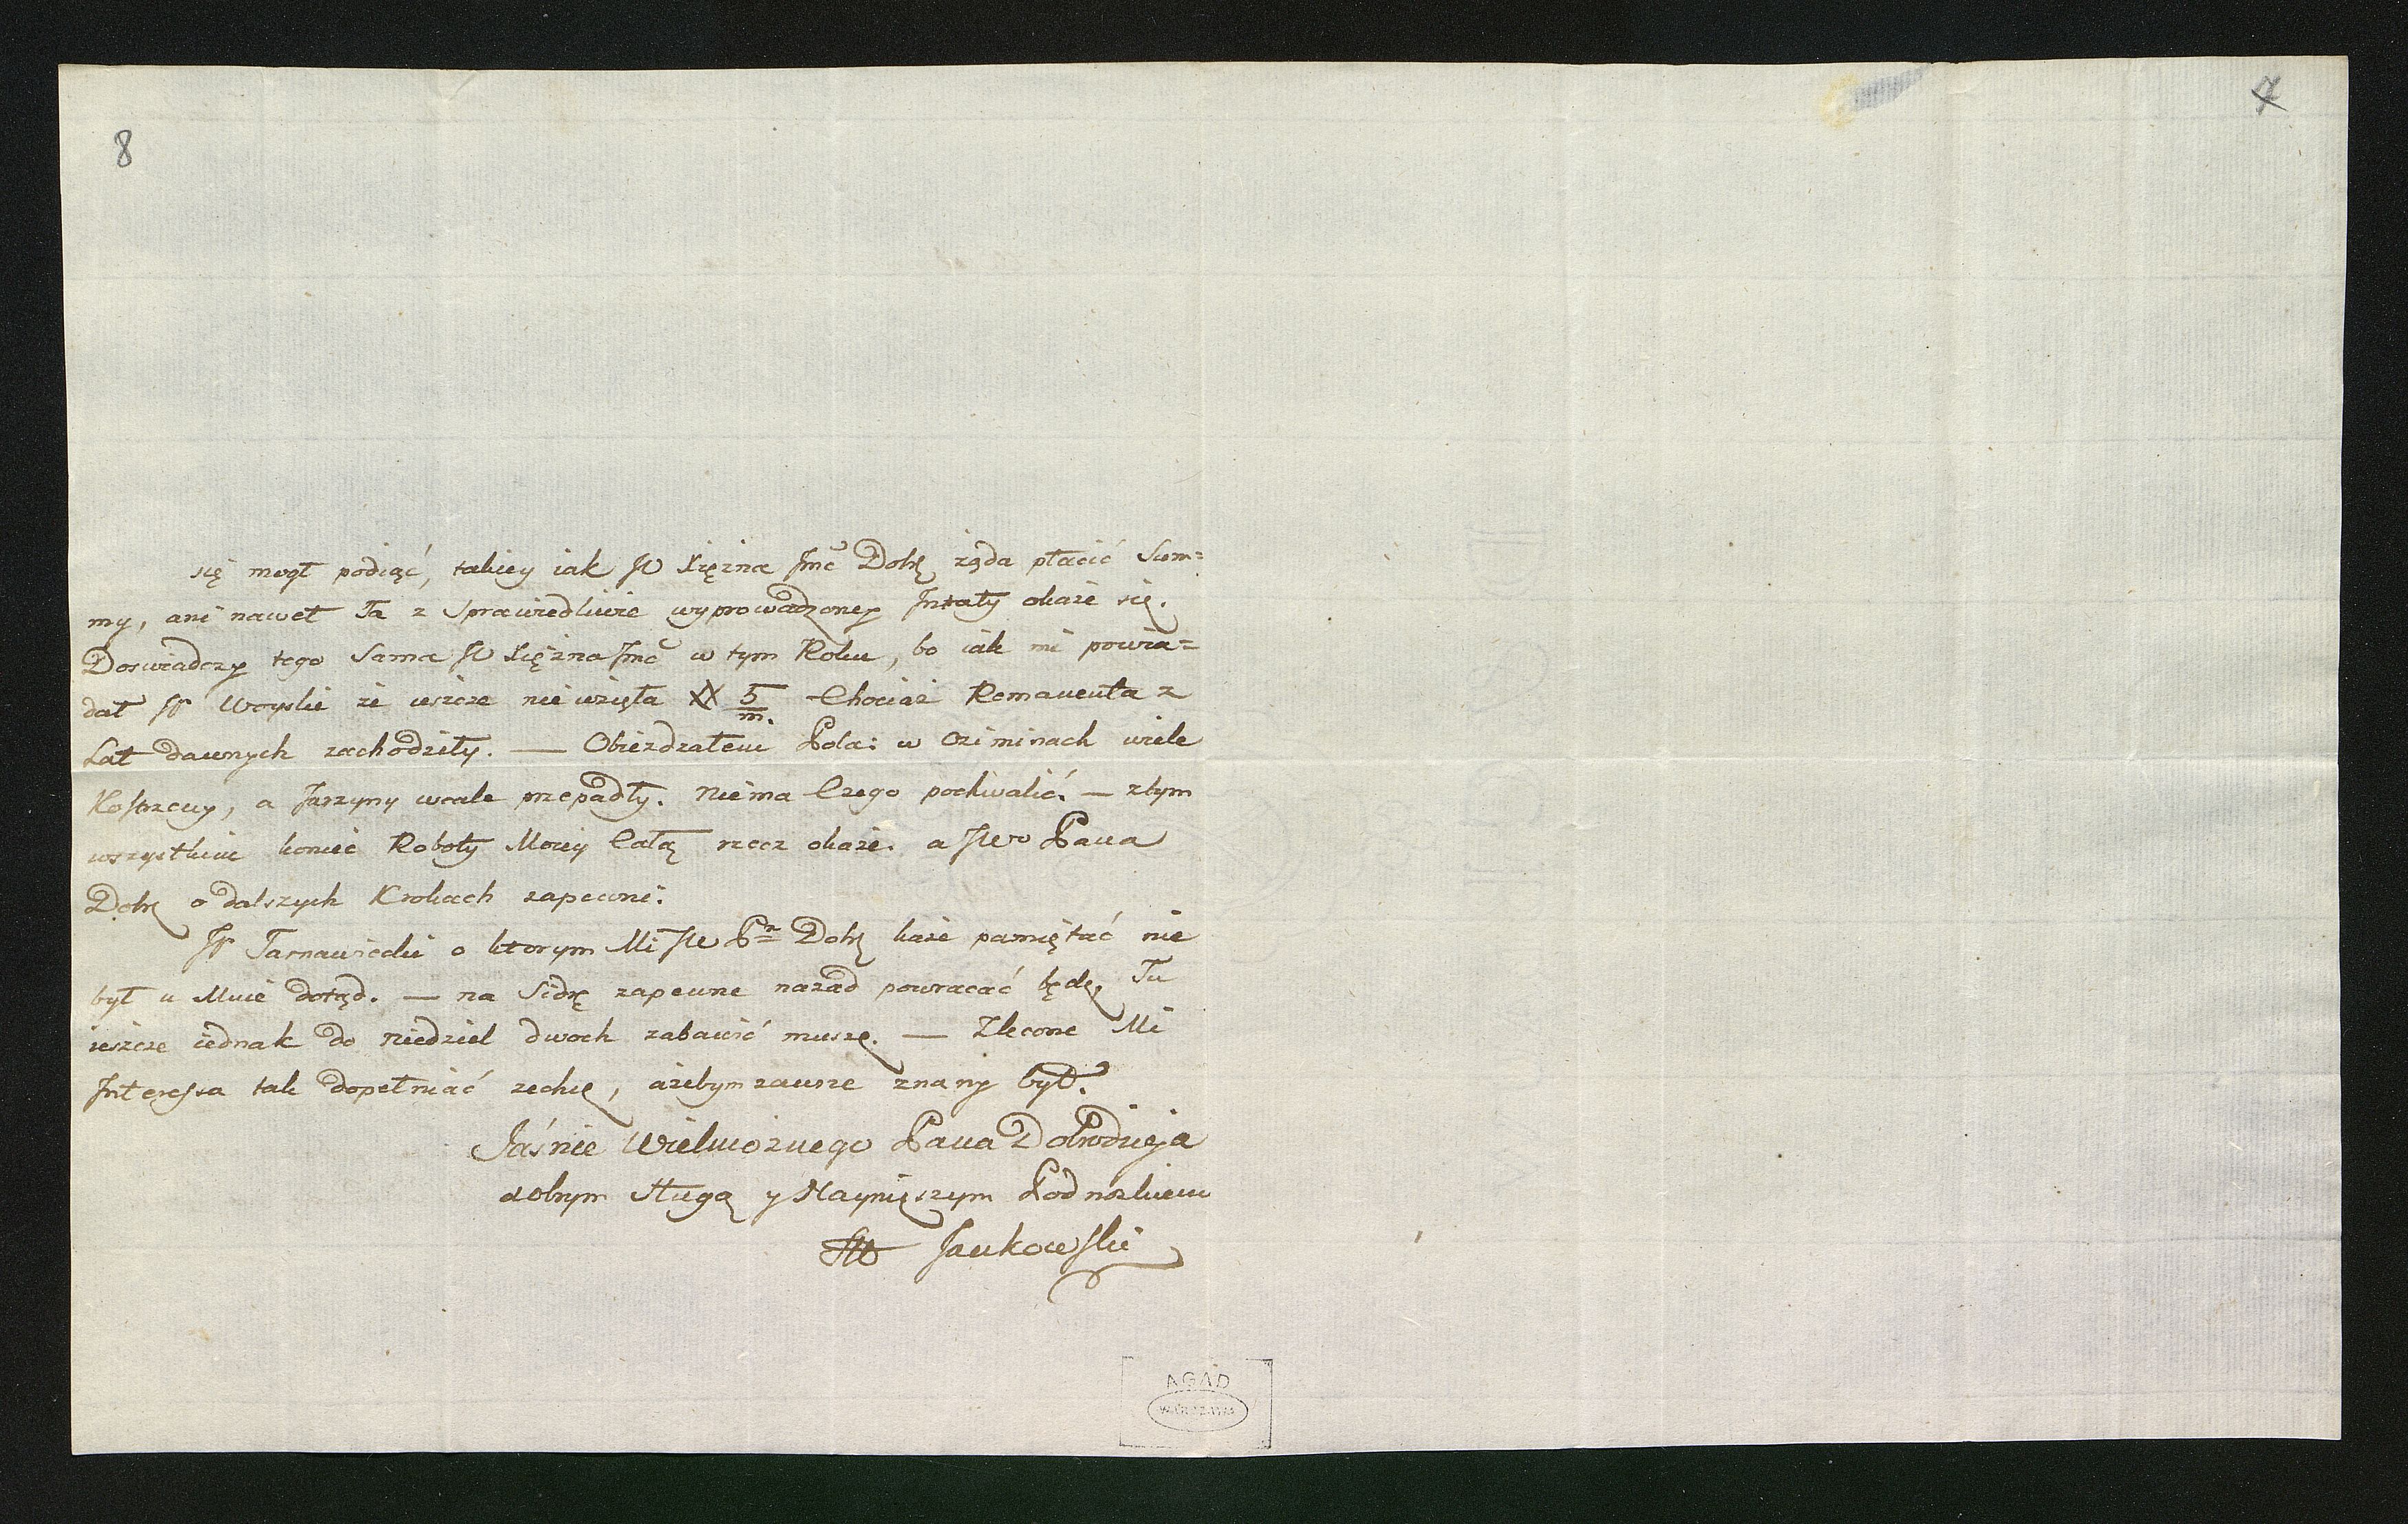 8
7
się mogł podiąć, takiey iak JO Xiężna Jmć Dobr żąda płacić Sum=
my, ani nawet Ta z Sprawiedliwie wyprowadzoney Intraty okaże się.
Doswiadczy tego Sama JO Xiężna Jmć w tym Roku, bo iak mi powia=
dał JP Woyski że ieszcze nie wzięła XX 5/m. Chociaż Remanenta z
Lat dawnych zachodziły. — Obiezdzałem Pola: w Oziminach wiele
Kostrzewy, a Jarzyny wcale przepadły. Niema Czego pochwalić. — ztym
wszystkim koniec Roboty Moiey Całą rzecz okaże. a JWo Pana
Dobr o dalszych Krokach zapewni:
JP Tarnawiecki o ktorym Mi JW Pn Dobr każe pamiętać nie
był u Mnie dotąd. — na Sidrę zapewne nazad powracać będę, Tu
ieszcze iednak do Niedziel dwoch zabawić muszę. — Zlecone Mi
Interessa tak dopełniać zechcę, ażebym zawsze znany był.
Jaśnie Wielmożnego Pana Dobrodzieja
dobrym Sługą y Nayniższym Podnożkiem
Jankowski
AGAD
WARSZAWA